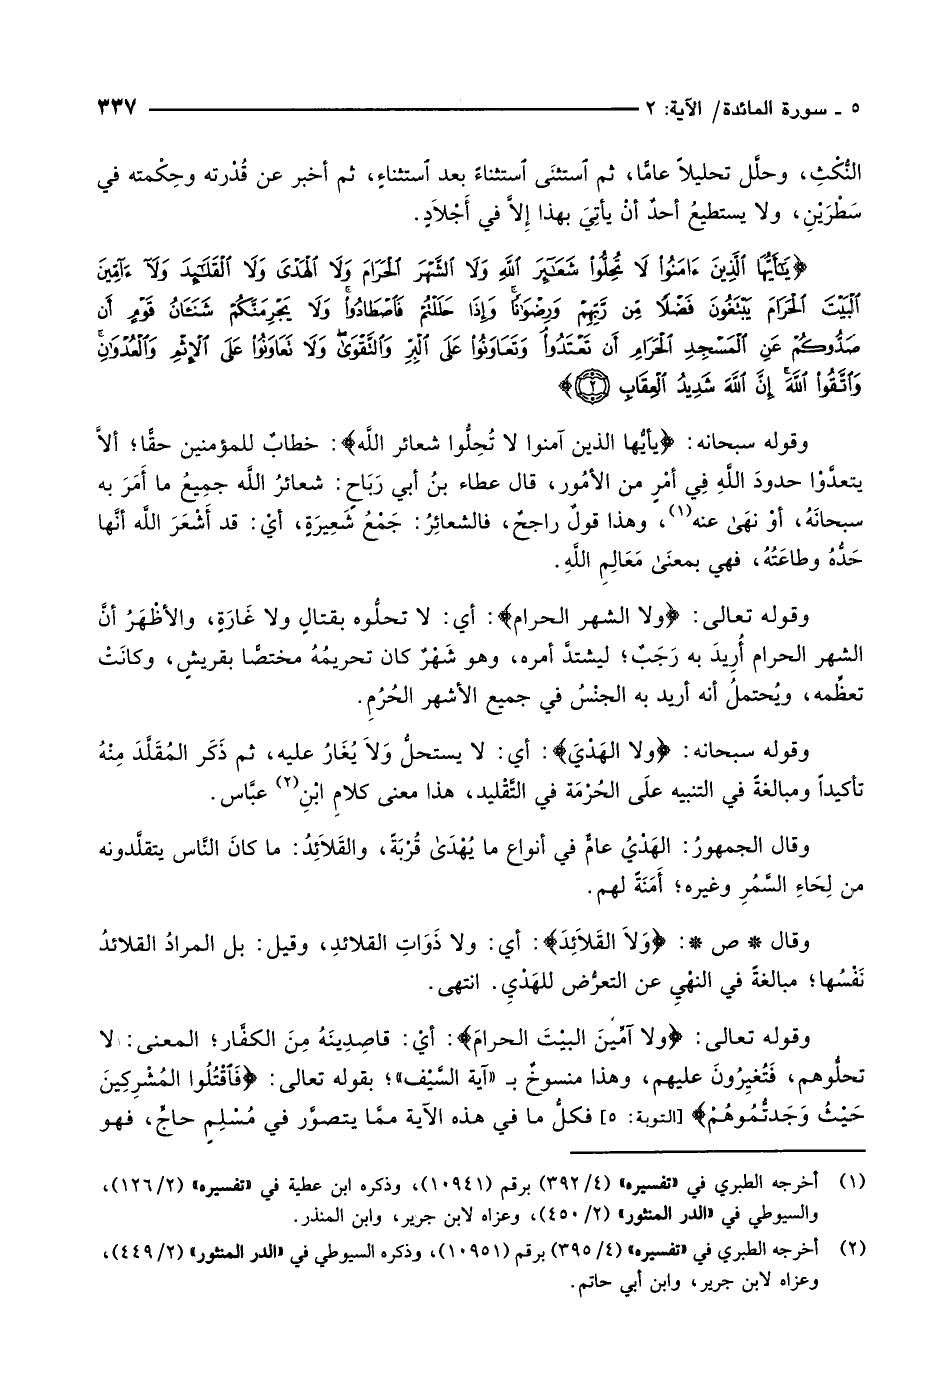 ٥ ـ سورة المائدة/ الآية: ٢ ٣٣٧
النُّكْثِ، وحلَّل تحليلاً عامًّا، ثم ٱستثنَى ٱستثناءً بعد ٱستثناءٍ، ثم أخبر عن قُدْرته وحِكْمته في
سَطْرَيْنِ، ولا يستطيعُ أحدٌ أنْ يأتِيَ بهذا إِلاَّ في أَجْلاَدٍ.
﴿يَـٰٓأَيُّهَا ٱلَّذِينَ ءَامَنُوا۟ لَا تُحِلُّوا۟ شَعَـٰٓئِرَ ٱللَّهِ وَلَا ٱلشَّهْرَ ٱلْحَرَامَ وَلَا ٱلْهَدْىَ وَلَا ٱلْقَلَـٰٓئِدَ وَلَآ ءَآمِّينَ
ٱلْبَيْتَ ٱلْحَرَامَ يَبْتَغُونَ فَضْلًا مِّن رَّبِّهِمْ وَرِضْوَٰنًا ۚ وَإِذَا حَلَلْتُمْ فَٱصْطَادُوا۟ ۚ وَلَا يَجْرِمَنَّكُمْ شَنَـَٔانُ قَوْمٍ أَن
صَدُّوكُمْ عَنِ ٱلْمَسْجِدِ ٱلْحَرَامِ أَن تَعْتَدُوا۟ ۘ وَتَعَاوَنُوا۟ عَلَى ٱلْبِرِّ وَٱلتَّقْوَىٰ ۖ وَلَا تَعَاوَنُوا۟ عَلَى ٱلْإِثْمِ وَٱلْعُدْوَٰنِ ۚ
وَٱتَّقُوا۟ ٱللَّهَ ۖ إِنَّ ٱللَّهَ شَدِيدُ ٱلْعِقَابِ ٢﴾
وقوله سبحانه: ﴿يأيُّها الذين آمنوا لا تُحِلُّوا شعائر اللَّه﴾: خطابٌ للمؤمنين حقًّا؛ ألاَّ
يتعدَّوْا حدودَ اللَّهِ فِي أمْرٍ من الأمُور، قال عطاء بنُ أبي رَبَاحٍ: شعائرُ اللَّه جميعُ ما أَمَرَ به
سبحانَهُ، أوْ نهَىٰ عنه(١)، وهذا قولٌ راجحٌ، فالشعائِرُ: جَمْعُ شَعِيرَةٍ، أيْ: قد أَشْعَرَ اللَّه أنَّها
حَدُّهُ وطاعَتُهُ، فهي بمعنَىٰ مَعَالِمِ اللَّهِ.
وقوله تعالى: ﴿ولا الشهر الحرام﴾: أي: لا تحلُّوه بقتالٍ ولا غَارَةٍ، والأظْهَرُ أنَّ
الشهر الحرام أُرِيدَ به رَجَبٌ؛ ليشتدَّ أمره، وهو شَهْرٌ كان تحريمُهُ مختصًّا بقريشٍ، وكانَتْ
تعظِّمه، ويُحتملُ أنه أريد به الجنْسُ في جميع الأشهر الحُرُمِ.
وقوله سبحانه: ﴿ولا الهَدْيَ﴾: أي: لا يستحلُّ وَلاَ يُغَارُ عليه، ثم ذَكَر المُقَلَّدَ مِنْهُ
تأكيداً ومبالغةً في التنبيه علَى الحُرْمَة في التَّقْليد، هذا معنى كلامِ ابْنِ(٢) عبَّاس.
وقال الجمهورُ: الهَدْيُ عامٌّ في أنواع ما يُهْدَىٰ قُرْبَةً، والقَلاَئِدُ: ما كانَ النَّاس يتقلَّدونه
من لِحَاءِ السَّمُرِ وغيره؛ أَمَنَةً لهم.
وقال * ص *: ﴿وَلاَ القَلاَئِدَ﴾: أي: ولا ذَوَاتِ القلائدِ، وقيل: بل المرادُ القلائدُ
نَفْسُها؛ مبالغةً في النهْيِ عن التعرُّض للهَدْيِ. انتهى.
وقوله تعالى: ﴿ولا آمِّينَ البيْتَ الحرامَ﴾: أيْ: قاصِدِينَهُ مِنَ الكفَّار؛ المعنى: لا
تحلُّوهم، فَتُغِيرُونَ عليهم، وهذا منسوخٌ بـ «آية السَّيْف»؛ بقوله تعالى: ﴿فَٱقْتُلُوا المُشْرِكِينَ
حَيْثُ وَجَدتُّمُوهُمْ﴾ [التوبة: ٥] فكلُّ ما في هذه الآية ممَّا يتصوَّر في مُسْلِمٍ حاجٍّ، فهو
(١) أخرجه الطبري في «تفسيره» (٣٩٢/٤) برقم (١٠٩٤١)، وذكره ابن عطية في «تفسيره» (١٢٦/٢)،
والسيوطي في «الدر المنثور» (٤٥٠/٢)، وعزاه لابن جرير، وابن المنذر.
(٢) أخرجه الطبري في «تفسيره» (٣٩٥/٤) برقم (١٠٩٥١)، وذكره السيوطي في «الدر المنثور» (٤٤٩/٢)،
وعزاه لابن جرير، وابن أبي حاتم.